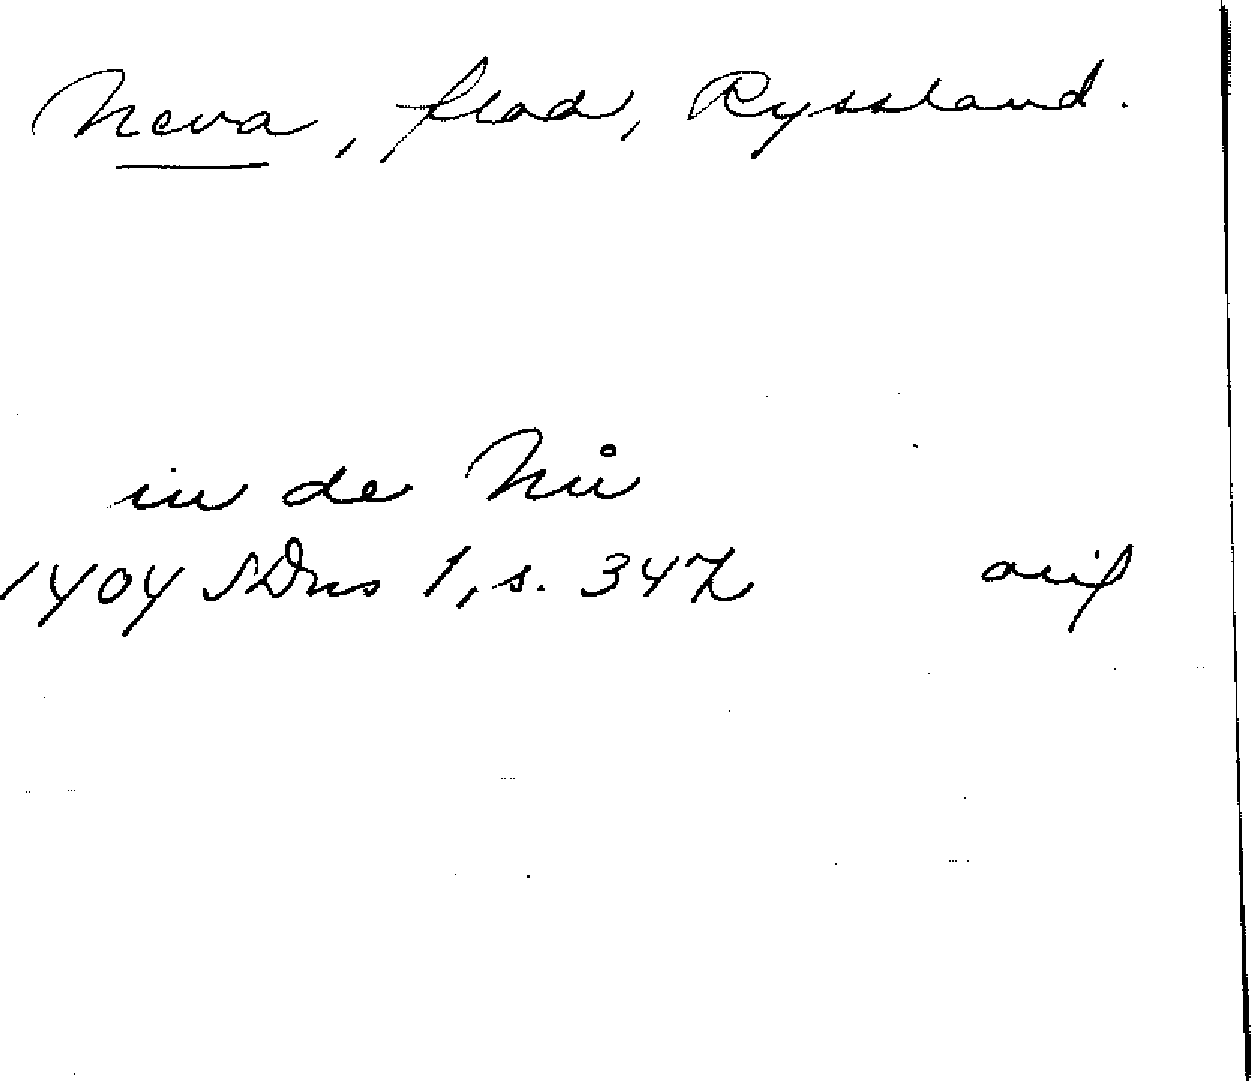 Neva, flod, Ryssland.
in de Nů
1404 SDns 1, s. 347
avif